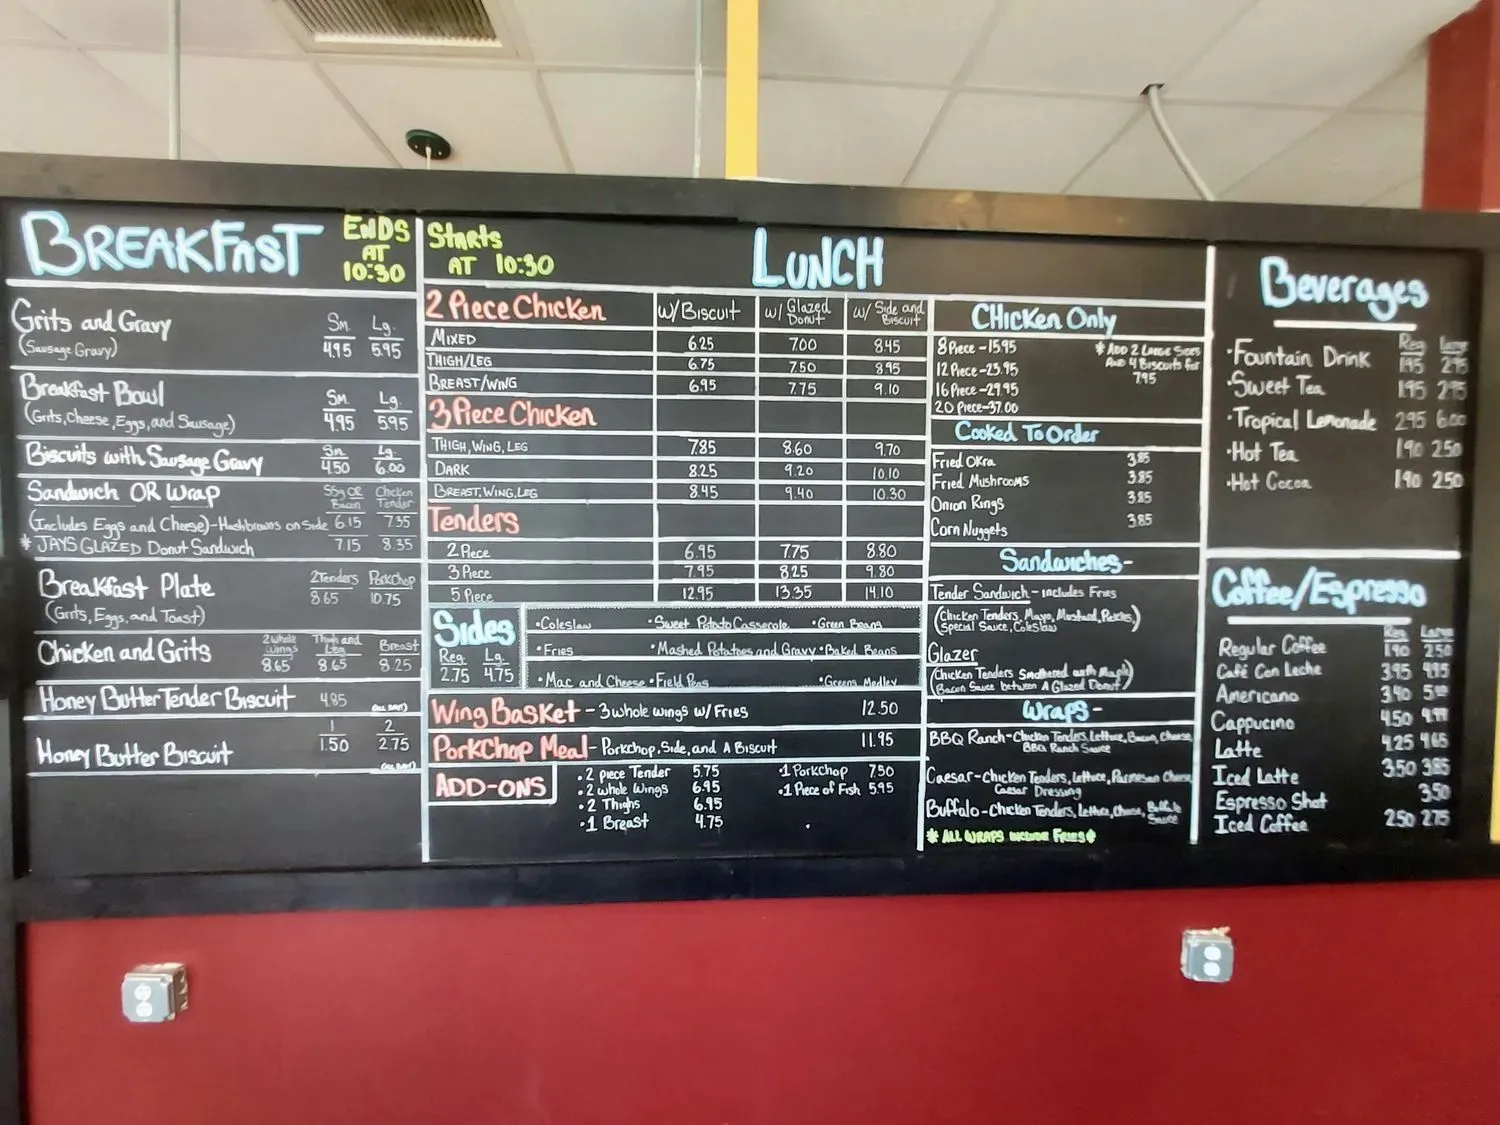 BREAKFAST
ENDS
AT
10:30
Grits and Gravy
(Sausage Gravy)
Sm. Lg.
4.95 5.95
Breakfast Bowl
(Grits, Cheese, Eggs, and Sausage)
Sm. Lg.
4.95 5.95
Biscuits with Sausage Gravy
Sm. Lg.
4.50 6.00
Sandwich OR Wrap
SSg OR Bacon
Chicken Tender
(Includes Eggs and Cheese)-Hashbrowns on Side 6.15 7.35
* JAYS GLAZED Donut Sandwich 7.15 8.35
Breakfast Plate
(Grits, Eggs, and Toast)
2 Tenders PorkChop
8.65 10.75
Chicken and Grits
2 whole wings
Thigh and Leg
Breast
8.65 8.65 8.25
Honey Butter Tender Biscuit 4.85 (ALL DAY!)
Honey Butter Biscuit
1 2
1.50 2.75
(ALL DAY!)
Starts
AT 10:30
LUNCH
2 Piece Chicken w/ Biscuit w/ Glazed Donut w/ Side and Biscuit
MIXED 6.25 7.00 8.45
THIGH/LEG 6.75 7.50 8.95
BREAST/WING 6.95 7.75 9.10
3 Piece Chicken
THIGH, WING, LEG 7.85 8.60 9.70
DARK 8.25 9.20 10.10
BREAST, WING, LEG 8.45 9.40 10.30
Tenders
2 Piece 6.95 7.75 8.80
3 Piece 7.95 8.25 9.80
5 Piece 12.95 13.35 14.10
Sides
Reg. Lg.
2.75 4.75
•Coleslaw •Sweet Potato Casserole •Green Beans
•Fries •Mashed Potatoes and Gravy •Baked Beans
•Mac and Cheese •Field Peas •Greens Medley
Wing Basket - 3 whole wings w/ Fries 12.50
PorkChop Meal - PorkChop, Side, and A Biscuit 11.95
ADD-ONS
•2 piece Tender 5.75
•2 whole Wings 6.95
•2 Thighs 6.95
•1 Breast 4.75
•1 Porkchop 7.50
•1 Piece of Fish 5.95
CHicken Only
8 Piece - 15.95
12 Piece - 23.95
16 Piece - 29.95
20 Piece - 37.00
* ADD 2 LARGE Sides
AND 4 Biscuits for
7.95
Cooked To Order
Fried OKra 3.85
Fried Mushrooms 3.85
Onion Rings 3.85
Corn Nuggets 3.85
Sandwiches-
Tender Sandwich - includes Fries
(Chicken Tenders, Mayo, Mustard, Pickles,
Special Sauce, Coleslaw)
Glazer
(Chicken Tenders Smothered with Maple
Bacon Sauce between A Glazed Donut)
Wraps-
BBQ Ranch - Chicken Tenders, Lettuce, Bacon, Cheese,
BBQ Ranch Sauce
Caesar - Chicken Tenders, Lettuce, Parmesan Cheese,
Caesar Dressing
Buffalo - Chicken Tenders, Lettuce, Cheese, Buffalo
Sauce
* ALL WRAPS INCLUDE FRIES *
Beverages
Reg Large
•Fountain Drink 1.95 2.95
•Sweet Tea 1.95 2.95
•Tropical Lemonade 2.95 6.00
•Hot Tea 1.90 2.50
•Hot Cocoa 1.90 2.50
Coffee/Espresso
Reg Large
Regular Coffee 1.90 2.50
Café Con Leche 3.95 4.95
Americano 3.40
Cappucino 4.50 4.99
Latte 4.25 4.65
Iced Latte 3.50 3.85
Espresso Shot 3.50
Iced Coffee 2.50 2.75